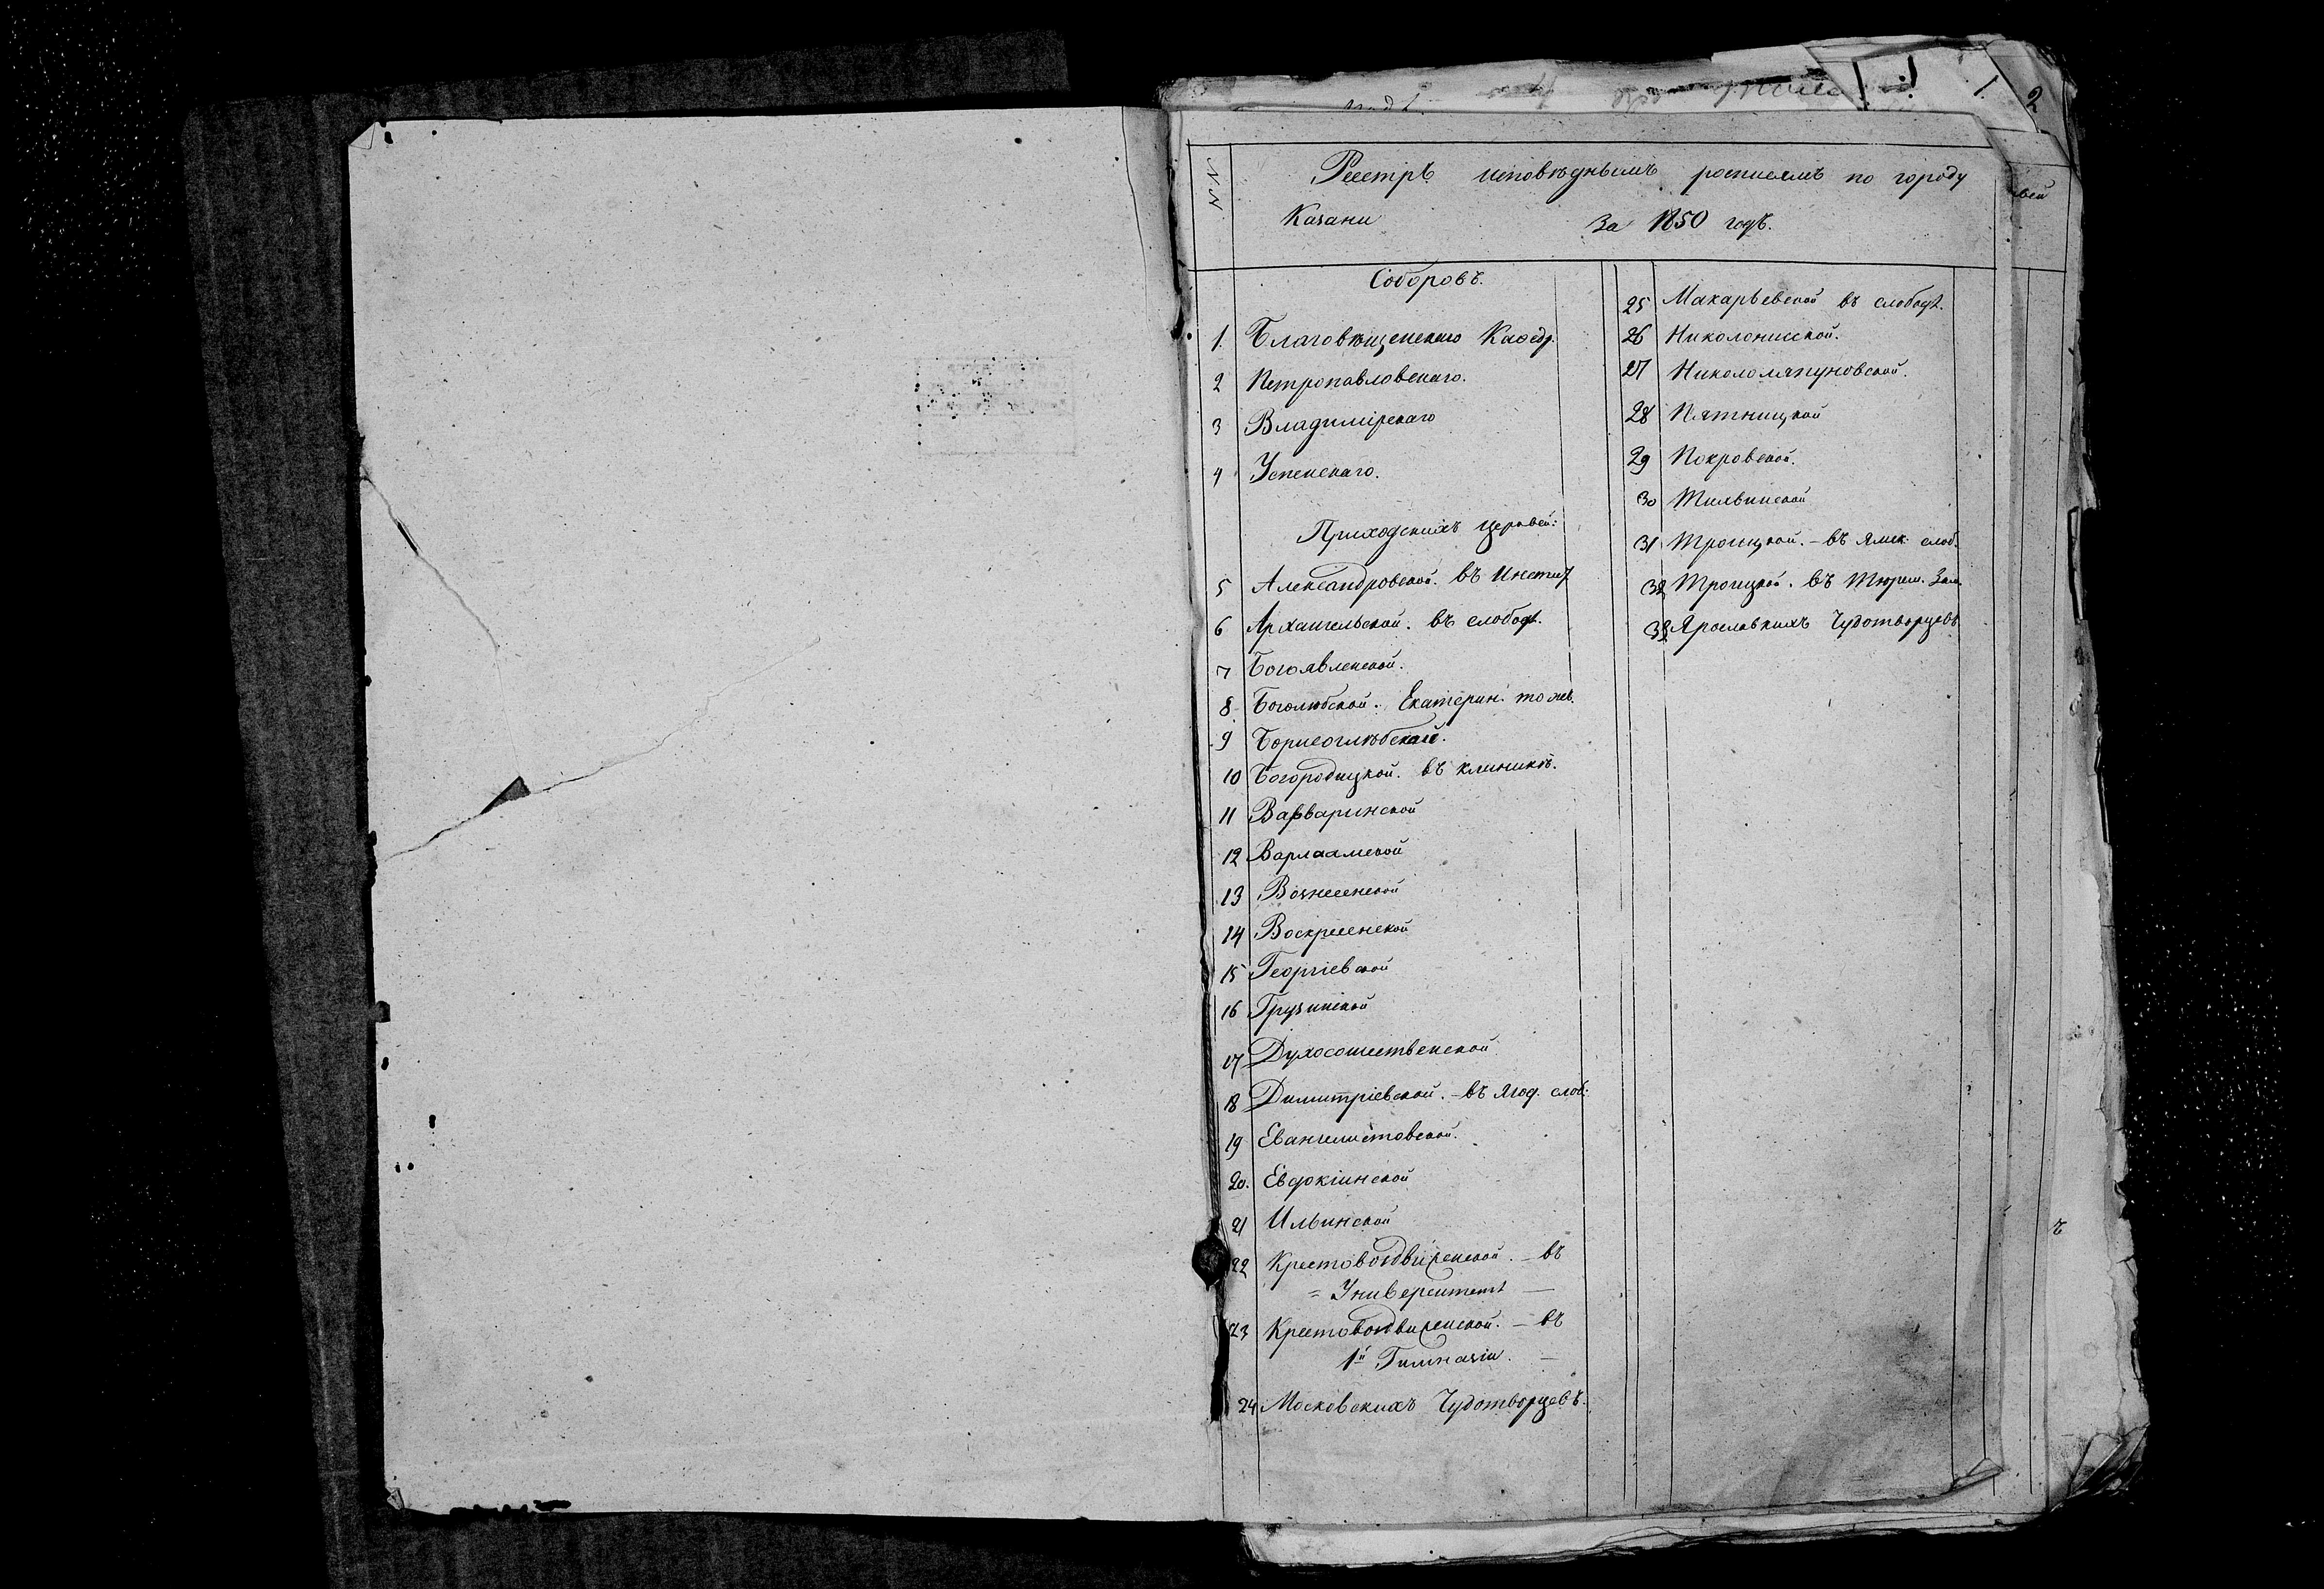 NN
Реестръ исповѣднымъ росписямъ по городу
Казани за 1850 годъ.
Соборовъ.
1. Благовѣщенскаго Каѳедр.
2 Петропавловскаго.
3 Владимірскаго
4 Успенскаго.
Приходскихъ церквей:
5 Александровской. въ Инстит
6 Архангельской. въ слободѣ.
7 Богоявленской.
8. Боголюбской. Екатерин. тожъ.
9 Борисоглѣбской.
10 Богородицкой. въ клиникѣ.
11 Варваринской
12 Варлаамской
13 Вознесенской
14 Воскресенской
15 Георгіевской
16 Грузинской
17 Духосошественской
18 Димитріевской. - въ Ягод. слоб:
19 Евангелистовской.
20. Евдокіинской
21 Ильинской
22 Крестовоздвиженской. - въ
= Университетѣ —
23 Крестовоздвиженской. - въ
1й Гимназіи. —
24 Московскихъ Чудотворцевъ.
25 Макарьевской въ слободѣ.
26 Николонисской.
27 Никололяпуновской.
28 Пятницкой
29 Покровской.
30 Тихвинской
31 Троицкой. - въ Ямск. слоб.
32 Троицкой. въ Тюрем. Зам.
33 Ярославкихъ Чудотворцевъ
1
2